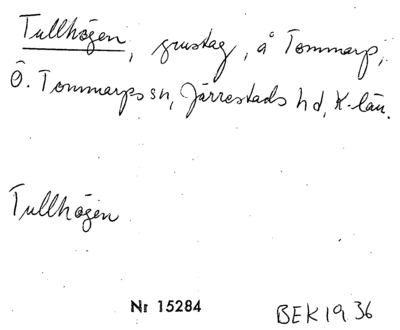 Tullhögen, grustag, å Tommarp,
Ö. Tommarps sn, Järrestads hd, K-län.
Tullhögen
Nr 15284
BEK 1936